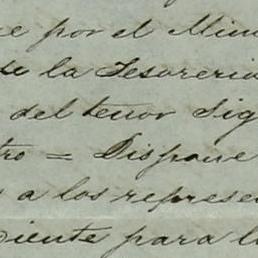 e por el Min
de la Tesoreria
del tenor Sig
tro = Dispone
a los represe
diente para l